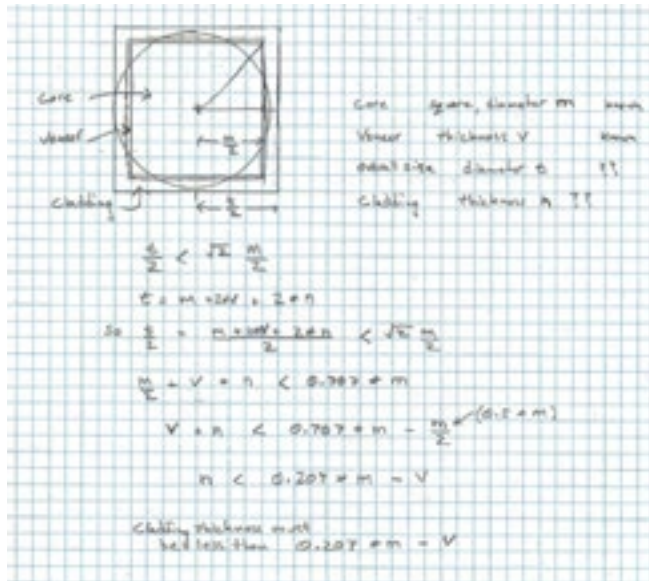 Core
Veneer
Cladding
m/2
t/2
Core square, diameter m known
Veneer thickness V known
overall size diameter t ??
Cladding thickness n ??
t/2 < √2 m/2
t = m + 2*V + 2*n
So t/2 = (m + 2*V + 2*n)/2 < √2 m/2
m/2 + V + n < 0.707 * m
V + n < 0.707 * m - m/2 (0.5 * m)
n < 0.207 * m - V
Cladding thickness must
be less than 0.207 * m - V